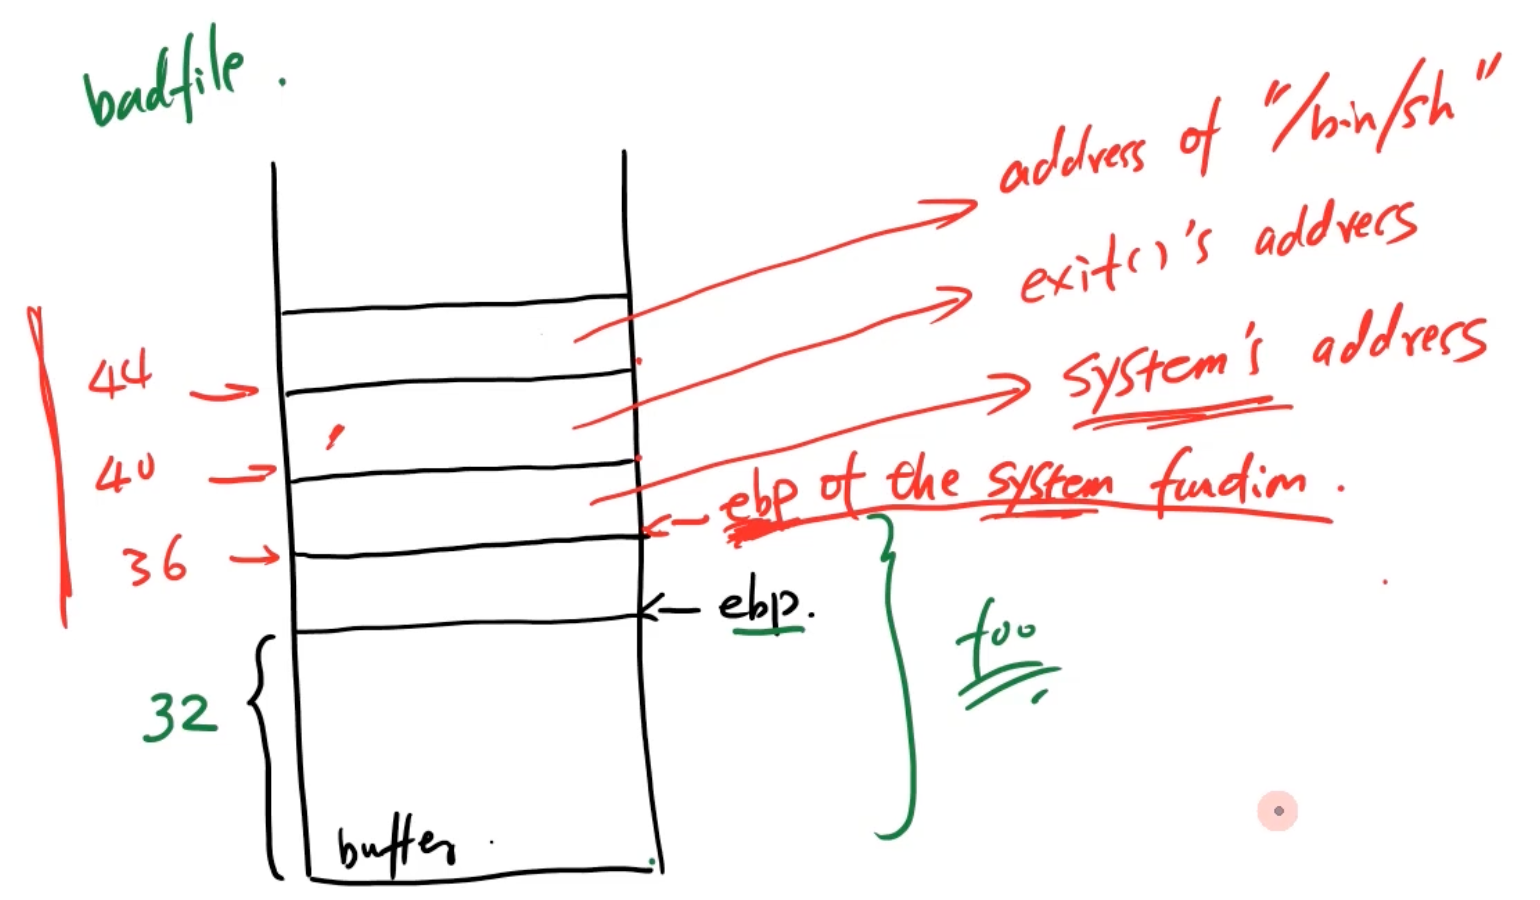 badfile.
address of "/bin/sh"
exit()'s address
system's address
44
40
ebp of the system function.
36
ebp.
foo
32
buffer.